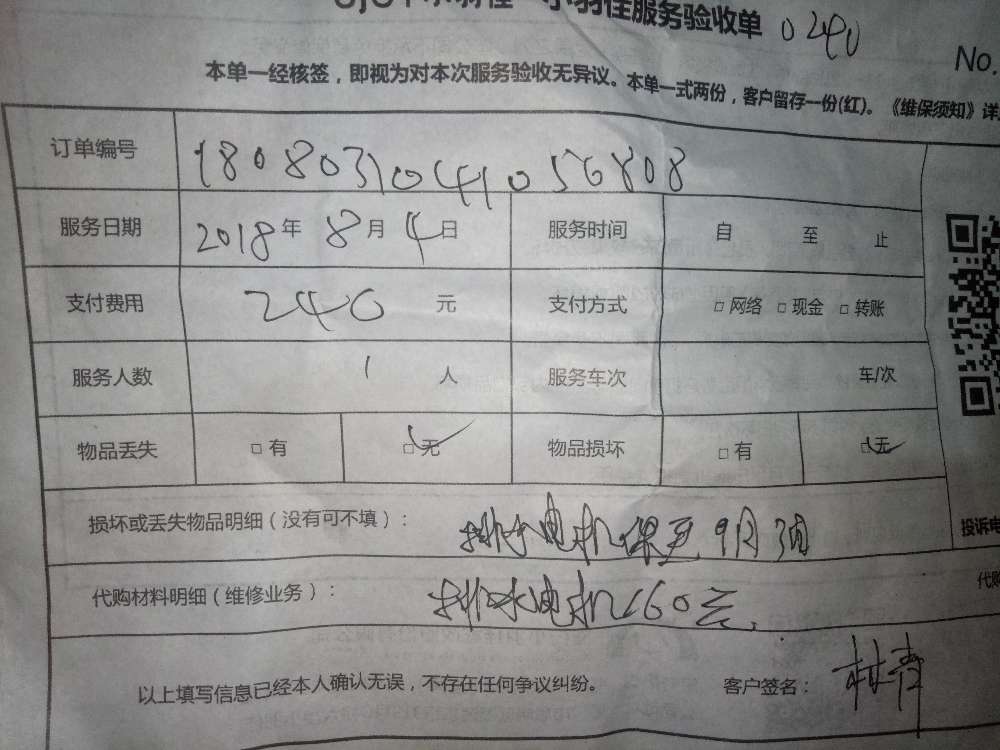 小羽佳服务验收单 0240
No.
本单一经核签，即视为对本次服务验收无异议。本单一式两份，客户留存一份(红)。《维保须知》详
订单编号 18080310441056808
服务日期 2018年 8月 4日 服务时间 自 至 止
支付费用 240 元 支付方式 □网络 □现金 □转账
服务人数 1 人 服务车次 车/次
物品丢失 □有 □无 物品损坏 □有 □无
损坏或丢失物品明细（没有可不填）： 排水电机保 9月3日
投诉电
代购材料明细（维修业务）： 排水电机160元
代购
以上填写信息已经本人确认无误，不存在任何争议纠纷。 客户签名： 林青